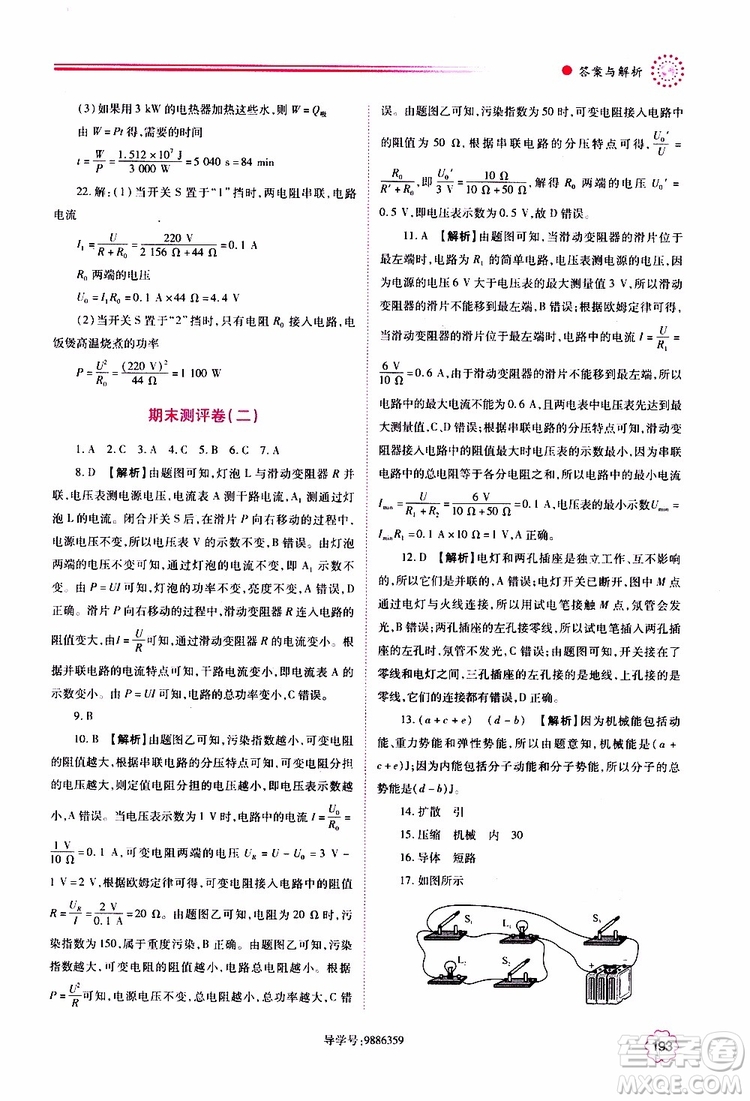 答案与解析
(3)如果用 3 kW 的电热器加热这些水,则 W=Q吸
由 W=Pt 得,需要的时间
t=W/P=1.512×10⁷ J/3 000 W=5 040 s=84 min
22.解:(1)当开关 S 置于“1”挡时,两电阻串联,电路
电流
I₁=U/(R+R₀)=220 V/(2 156 Ω+44 Ω)=0.1 A
R₀ 两端的电压
U₀=I₁R₀=0.1 A×44 Ω=4.4 V
(2)当开关 S 置于“2”挡时,只有电阻 R₀ 接入电路,电
饭煲高温烧煮的功率
P=U²/R₀=(220 V)²/44 Ω=1 100 W
期末测评卷(二)
1.A 2.C 3.C 4.C 5.B 6.C 7.A
8.D 【解析】由题图可知,灯泡 L 与滑动变阻器 R 并
联,电压表测电源电压,电流表 A 测干路电流,A₁ 测灯
泡 L 的电流。闭合开关 S 后,滑片 P 向右移动的过程中,
电源电压不变,电压表 V 的示数不变,B 错误。由于灯泡
两端的电压不变,通过灯泡的电流不变,电流表 A₁ 示数
不变。由 P=UI 可知,灯泡的功率不变,亮度不变,A、D
正确。滑片 P 向右移动的过程中,滑动变阻器 R 连入电路的
阻值变大,由 I=U/R 可知,通过滑动变阻器的电流变小。
根据并联电路的电流特点可知,干路电流变小,电流表 A
示数变小。由 P=UI 可知,电路的总功率变小,C 错误。
9.B
10.B 【解析】由题图乙可知,污染指数越小,可变电阻
的阻值越大,根据串联电路的分压特点可知,其分担的电
压越大,则定值电阻分担的电压越小,电压表的示数越
小,A 错误。由题意可知,当电压表示数为 1 V 时,电路中的电流 I=U₀/R₀=
1 V/10 Ω=0.1 A,可变电阻两端的电压 U_R=U-U₀=3 V-
1 V=2 V,根据欧姆定律可得,可变电阻接入电路的阻值
R=U_R/I=2 V/0.1 A=20 Ω,由题图乙可知,此时污染
指数为 150,属于重度污染,B 正确。由题图乙可知,污染
指数越小,可变电阻的阻值越大,电路总电阻越大,根据
P=U²/R 可知,电源电压不变,电阻越大,总功率越小,C 错
误。由题图乙可知,污染指数为 50 时,可变电阻接入电路
的阻值为 50 Ω,根据串联电路的分压特点可得 U₀′/U=
R₀/(R′+R₀),即 U₀′/3 V=10 Ω/(10 Ω+50 Ω),解得 R₀ 两端的电压 U₀′=
0.5 V,即电压表示数为 0.5 V,故 D 错误。
11.A 【解析】由题图可知,当滑动变阻器的滑片位于
最左端时,电路为 R₁ 的简单电路,电压表测电源的电压,
因电源的电压 6 V 大于电压表的最大测量值 3 V,所以滑动
变阻器的滑片不能移到最左端,B 错误。根据欧姆定律可得,
当滑动变阻器的滑片位于最左端时,电路中的电流 I=U/R₁=
6 V/10 Ω=0.6 A,由于滑动变阻器的滑片不能在最左端,所以
电路中的最大电流不能为 0.6 A,且电压表先达到最
大测量值,C、D 错误。根据串联电路的分压特点可知,滑动变阻
器接入电路中的电阻值最大时电压表的示数最小,因串联
电路中的总电阻等于各分电阻之和,所以电路中的最小电流
Imin=U/(R₁+R₂)=6 V/(10 Ω+50 Ω)=0.1 A,则电压表的最小示数 Umin=
IminR₁=0.1 A×10 Ω=1 V,A 正确。
12.D 【解析】电灯和两孔插座是独立工作、互不影响
的,所以它们是并联的,A 错误;电灯开关已断开,图中 M 点
通过电灯与火线连接,所以用试电笔接触 M 点,氖管会发
光,B 错误;两孔插座的左孔接零线,试电笔插入两孔插
座的左孔时,氖管不发光,C 错误;由题图可知,开关接在了
零线和电灯之间,三孔插座的左孔接了火线、右孔接了
零线,它们的连接都是错误的,D 正确。
13.(a+c+e) (d-b) 【解析】因为机械能包括动
能、重力势能和弹性势能,所以由题意知,机械能为(a+
c+e)J。因为内能包括分子动能和分子势能,所以分子的总
势能是(d-b)J。
14.扩散 引
15.压缩 机械 内 30
16.导体 短路
17.如图所示
S₁ L₁
L₂ S₂
+ -
导学号:9886359
193
答案圈
MXQE.COM